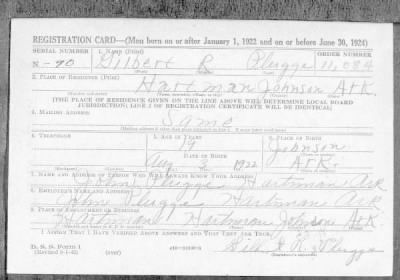 REGISTRATION CARD—(Men born on or after January 1, 1922 and on or before June 30, 1924)
SERIAL NUMBER 1. NAME (Print) ORDER NUMBER
N-90 Gilbert R Plugge 11,084
2. PLACE OF RESIDENCE (Print)
Hartman Johnson Ark.
[THE PLACE OF RESIDENCE GIVEN ON THE LINE ABOVE WILL DETERMINE LOCAL BOARD
JURISDICTION; LINE 2 OF REGISTRATION CERTIFICATE WILL BE IDENTICAL]
3. MAILING ADDRESS
Same
4. TELEPHONE 5. AGE IN YEARS 6. PLACE OF BIRTH
19 Johnson
DATE OF BIRTH
Aug 2 1922 Ark.
7. NAME AND ADDRESS OF PERSON WHO WILL ALWAYS KNOW YOUR ADDRESS
John Plugge Hartman Ark
8. EMPLOYER'S NAME AND ADDRESS
John Plugge Hartman Ark
9. PLACE OF EMPLOYMENT OR BUSINESS
Hartman Hartman Johnson Ark
I AFFIRM THAT I HAVE VERIFIED ABOVE ANSWERS AND THAT THEY ARE TRUE.
D. S. S. Form 1
R. Plugge